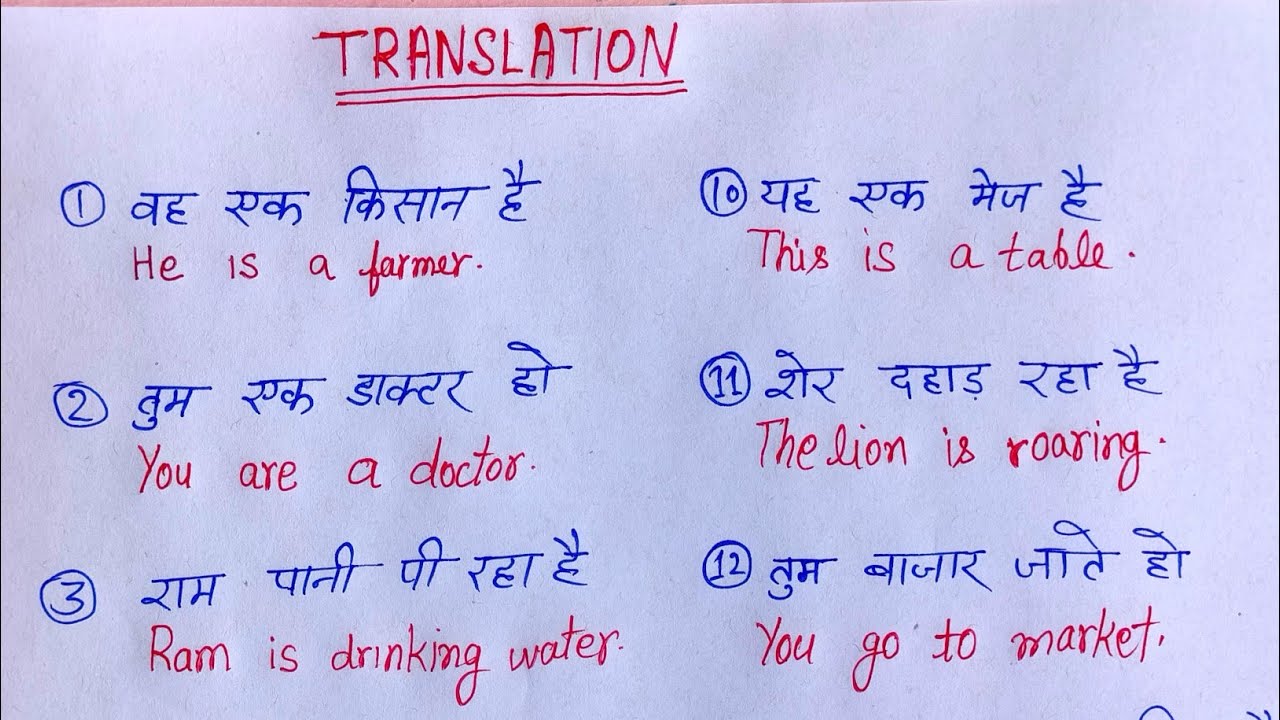 TRANSLATION
① वह एक किसान है
He is a farmer.
② तुम एक डाक्टर हो
You are a doctor.
③ राम पानी पी रहा है
Ram is drinking water.
⑩ यह एक मेज है
This is a table.
⑪ शेर दहाड़ रहा है
The lion is roaring.
⑫ तुम बाजार जाते हो
You go to market.